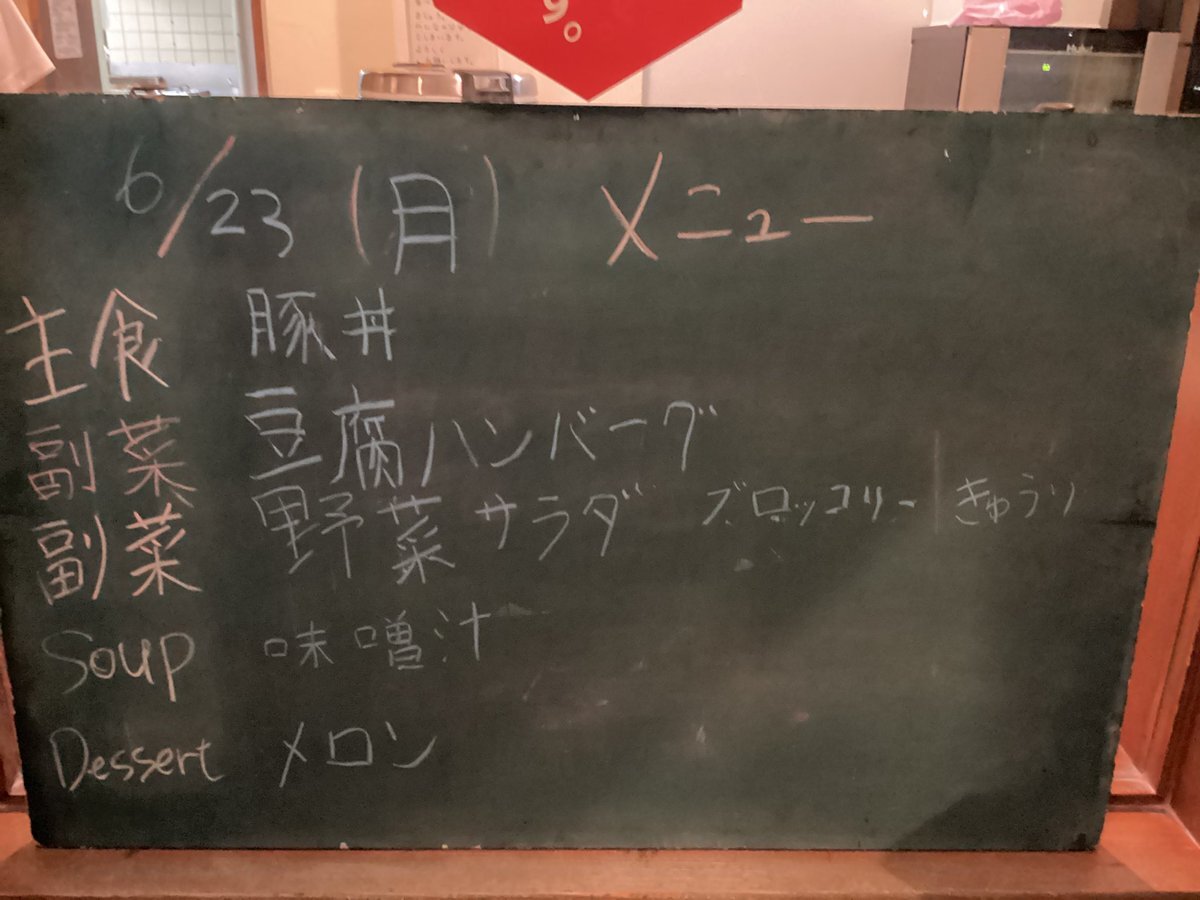 9。
6/23(月) メニュー
主食 豚丼
副菜 豆腐ハンバーグ
副菜 野菜サラダ ブロッコリー | きゅうり
Soup 味噌汁
Dessert メロン